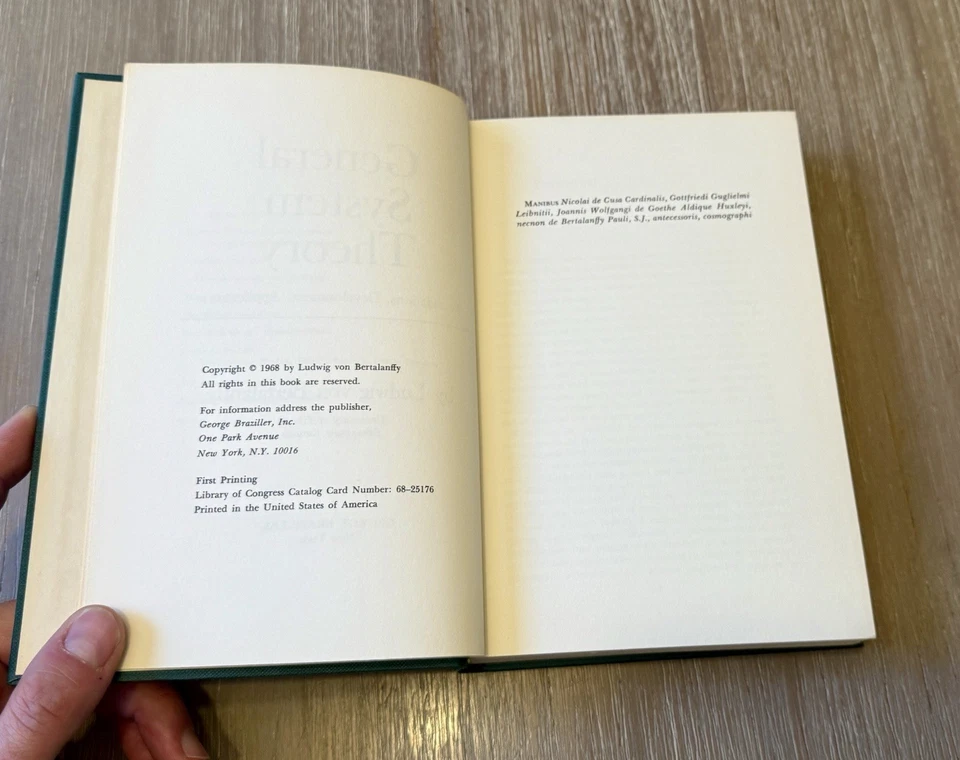 Copyright © 1968 by Ludwig von Bertalanffy
All rights in this book are reserved.
For information address the publisher,
George Braziller, Inc.
One Park Avenue
New York, N.Y. 10016
First Printing
Library of Congress Catalog Card Number: 68–25176
Printed in the United States of America
MANIBUS Nicolai de Cusa Cardinalis, Gottfriedi Guglielmi
Leibnitii, Joannis Wolfgangi de Goethe Aldique Huxleyi,
necnon de Bertalanffy Pauli, S.J., antecessoris, cosmographi